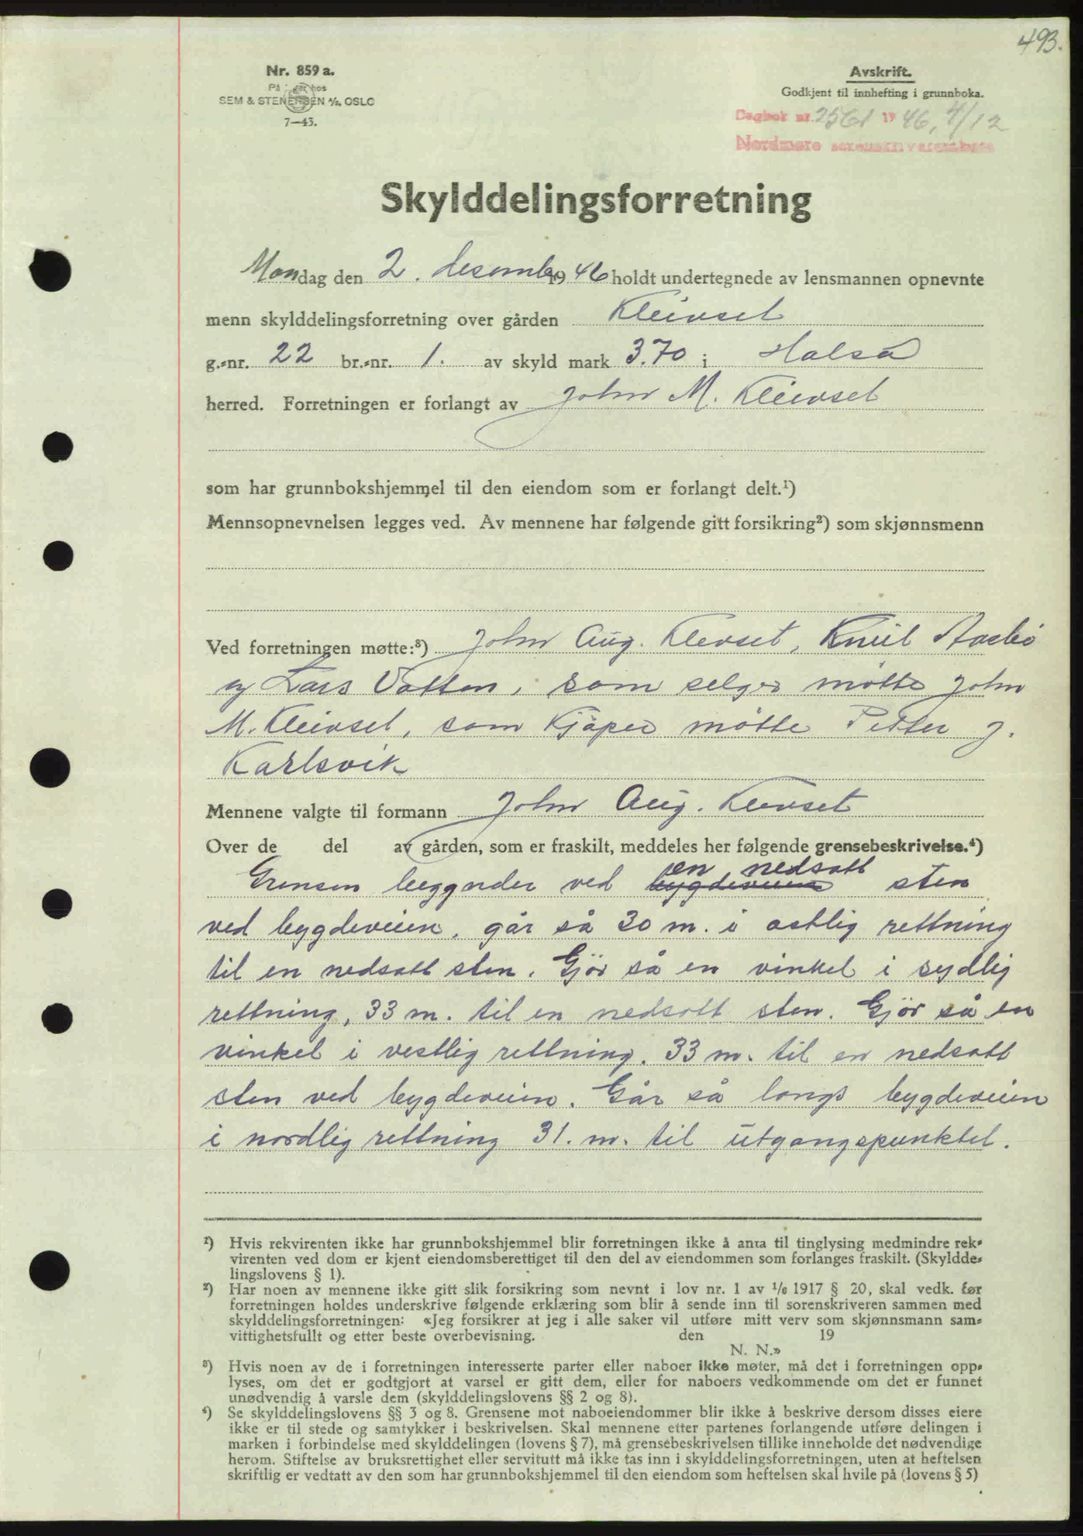 493.
Nr. 859 a.
På lager hos
SEM & STENERSEN A/S, OSLO
7—43.
Avskrift.
Godkjent til innhefting i grunnboka.
Dagbok nr. 2561 19 46, 4/12
Nordmøre sorenskriverembete
Skylddelingsforretning
Mandag den 2. desember 1946 holdt undertegnede av lensmannen opnevnte
menn skylddelingsforretning over gården Kleivset
g.-nr. 22 br.-nr. 1. av skyld mark 3.70 i Halsa
herred. Forretningen er forlangt av John M. Kleivset
som har grunnbokshjemmel til den eiendom som er forlangt delt.¹)
Mennsopnevnelsen legges ved. Av mennene har følgende gitt forsikring²) som skjønnsmenn
Ved forretningen møtte:³) John Aug. Klevset, Knut Aasbö
og Lars Vatten, som selger mötte John
M. Kleivset, som kjöper mötte Petter J.
Karlsvik
Mennene valgte til formann John Aug. Klevset
Over de del av gården, som er fraskilt, meddeles her følgende grensebeskrivelse.⁴)
Grensen begynder ved bygdeveien en nedsatt sten
ved bygdeveien. går så 30 m. i östlig rettning
til en nedsatt sten. Gjör så en vinkel i sydlig
rettning, 33 m. til en nedsatt sten. Gjör så en
vinkel i vestlig rettning. 33 m. til en nedsatt
sten ved bygdeveien. Går så langs bygdeveien
i nordlig rettning 31. m. til utgangspunktet.
¹) Hvis rekvirenten ikke har grunnbokshjemmel blir forretningen ikke å anta til tinglysing medmindre rek-
virenten ved dom er kjent eiendomsberettiget til den del av eiendommen som forlanges fraskilt. (Skyldde-
lingslovens § 1).
²) Har noen av mennene ikke gitt slik forsikring som nevnt i lov nr. 1 av ¹/₆ 1917 § 20, skal vedk. før
forretningen holdes underskrive følgende erklæring som blir å sende inn til sorenskriveren sammen med
skylddelingsforretningen: «Jeg forsikrer at jeg i alle saker vil utføre mitt verv som skjønnsmann sam-
vittighetsfullt og etter beste overbevisning. den 19
N. N.»
³) Hvis noen av de i forretningen interesserte parter eller naboer ikke møter, må det i forretningen opp-
lyses, om det er godtgjort at varsel er gitt dem, eller for naboers vedkommende om det er funnet
unødvendig å varsle dem (skylddelingslovens §§ 2 og 8).
⁴) Se skylddelingslovens §§ 3 og 8. Grensene mot naboeiendommer blir ikke å beskrive dersom disses eiere
ikke er til stede og samtykker i beskrivelsen. Skal mennene etter partenes forlangende utføre delingen i
marken i forbindelse med skylddelingen (lovens § 7), må grensebeskrivelsen tillike inneholde det nødvendige
herom. Stiftelse av bruksrettighet eller servitutt må ikke tas inn i skylddelingsforretningen, uten at heftelsen
skriftlig er vedtatt av den som har grunnbokshjemmel til den eiendom som heftelsen skal hvile på (lovens § 5)